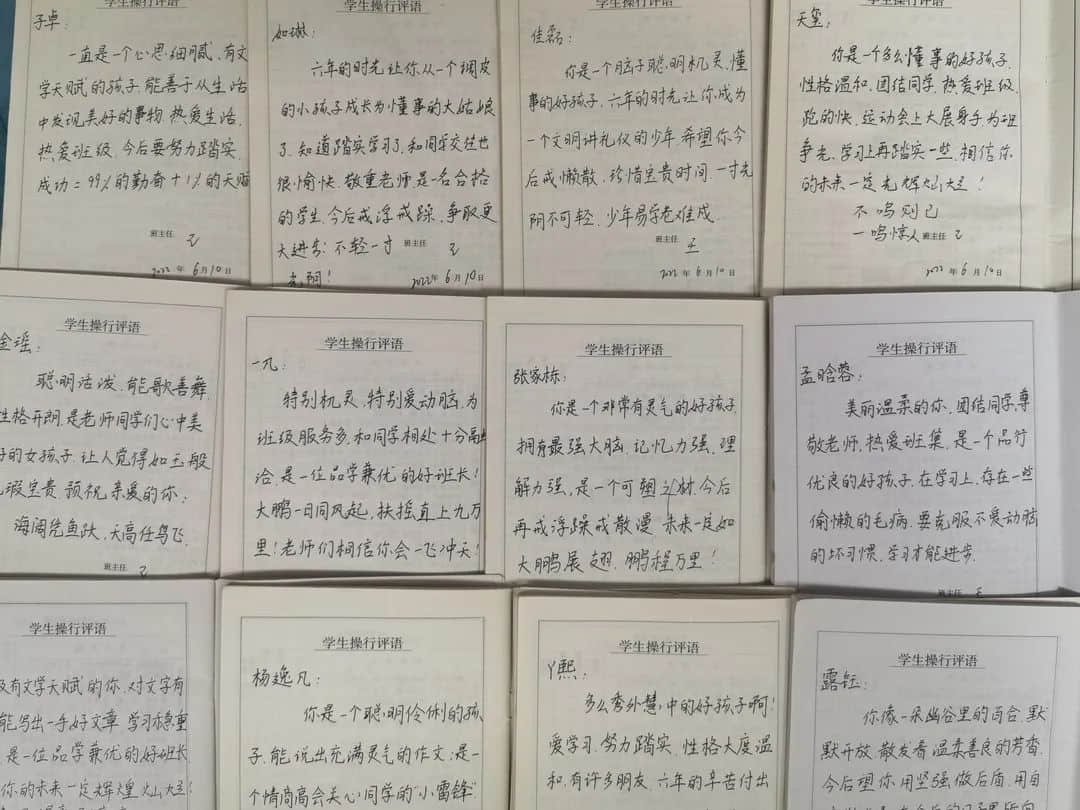 学生操行评语
子卓：
一直是一个心思细腻、有文
学天赋的孩子，能善于从生活
中发现美好的事物，热爱生活，
热爱班级，今后要努力踏实，
成功=99%的勤奋+1%的天赋
班主任 王
2022年6月10日
学生操行评语
如琳：
六年的时光让你从一个调皮
的小孩子成长为懂事的大姑娘
了，知道踏实学习了，和同学交往也
很愉快，敬重老师，是一名合格
的学生，今后戒浮戒躁，争取更
大进步！不轻一寸
光阴！
班主任 王
2022年6月10日
学生操行评语
佳磊：
你是一个脑子聪明机灵、懂
事的好孩子，六年的时光让你成为
一个文明讲礼仪的少年，希望你今
后戒懒散，珍惜宝贵时间，一寸光
阴不可轻，少年易学老难成。
班主任 王
2022年6月10日
学生操行评语
天玺：
你是一个多么懂事的好孩子，
性格温和，团结同学，热爱班级，
跑的快，运动会上大展身手，为班
争光，学习上再踏实一些，相信你
的未来一定光辉灿烂！
不鸣则已
一鸣惊人
班主任 王
2022年6月10日
学生操行评语
金瑶：
聪明活泼、能歌善舞，
性格开朗，是老师同学们心中美
好的女孩子，让人觉得如玉般
无瑕宝贵，预祝亲爱的你：
海阔凭鱼跃，天高任鸟飞。
班主任 王
学生操行评语
一凡：
特别机灵，特别爱动脑，为
班级服务多，和同学相处十分融
洽，是一位品学兼优的好班长！
大鹏一日同风起，扶摇直上九万
里！老师们相信你会一飞冲天！
学生操行评语
张家栋：
你是一个非常有灵气的好孩子，
拥有最强大脑，记忆力强，理
解力强，是一个可塑之材，今后
再戒浮躁戒散漫，未来一定如
大鹏展翅，鹏程万里！
学生操行评语
孟晗蓉：
美丽温柔的你，团结同学，尊
敬老师，热爱班集，是一个品行
优良的好孩子，在学习上，存在一些
偷懒的毛病，要克服不爱动脑
的坏习惯，学习才能进步。
班主任 王
学生操行评语
及有文学天赋的你，对文字有
能写出一手好文章，学习稳重
是一位品学兼优的好班长
你的未来一定辉煌灿烂！
学生操行评语
杨逸凡：
你是一个聪明伶俐的孩
子，能说出充满灵气的作文，是一
个情尚高会关心同学的“小雷锋”
学生操行评语
丫熙：
多么秀外慧中的好孩子啊！
爱学习，努力踏实，性格大度温
和，有许多朋友，六年的辛苦付出
学生操行评语
露钰：
你像一朵幽谷里的百合，默
默开放，散发着温柔善良的芳香，
今后望你用坚强做后盾，用自